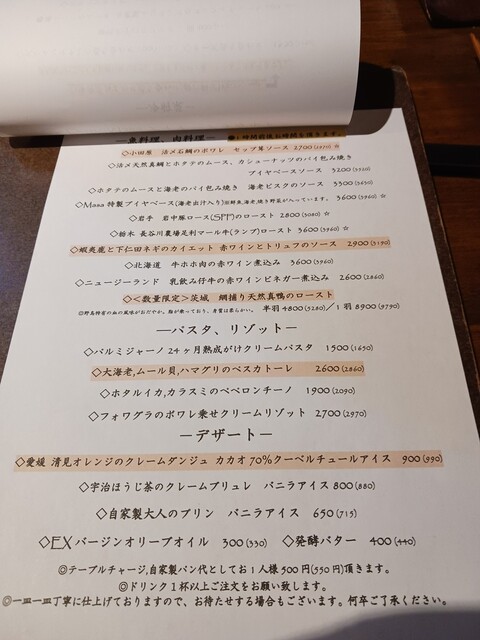 ―魚料理、肉料理― ◉1時間前後お時間を頂きます。
◇小田原 活〆石鯛のポワレ セップ茸ソース 2700(2970)☆
◇活〆天然真鯛とホタテのムース、カシューナッツのパイ包み焼き
ブイヤベースソース 3200(3520)
◇ホタテのムースと海老のパイ包み焼き 海老ビスクのソース 3300(3630)
◇Masa 特製ブイヤベース(海老出汁入り) 3600(3960)☆
◇岩手 岩中豚ロース(SPF)のロースト 2800(3080)☆
◇栃木 長谷川農場足利マール牛(ランプ)ロースト 3600(3960)☆
◇蝦夷鹿と下仁田ネギのカイエット 赤ワインとトリュフのソース 2900(3190)
◇北海道 牛ホホ肉の赤ワイン煮込み 3600(3960)
◇ニュージーランド 乳飲み仔牛の赤ワインビネガー煮込み 2600(2860)
◇<数量限定>茨城 網捕り天然真鴨のロースト
◎野鳥特有の血の風味がおだやか。脂が乗っており、身質は柔らかい。 半羽4800(5280)/1羽8900(9790)
―パスタ、リゾット―
◇パルミジャーノ24ヶ月熟成がけクリームパスタ 1500(1650)
◇大海老,ムール貝,ハマグリのペスカトーレ 2600(2860)
◇ホタルイカ,カラスミのペペロンチーノ 1900(2090)
◇フォワグラのポワレ乗せクリームリゾット 2700(2970)
―デザート―
◇愛媛 清見オレンジのクレームダンジュ カカオ70%クーベルチュールアイス 900(990)
◇宇治ほうじ茶のクレームブリュレ バニラアイス800(880)
◇自家製大人のプリン バニラアイス 650(715)
◇EXバージンオリーブオイル 300(330) ◇発酵バター 400(440)
◎テーブルチャージ,自家製パン代としてお1人様500円(550円)頂きます。
◎ドリンク1杯以上ご注文をお願い致します。
◎一皿一皿丁寧に仕上げておりますので、お待たせする場合もございます。何卒ご了承ください。